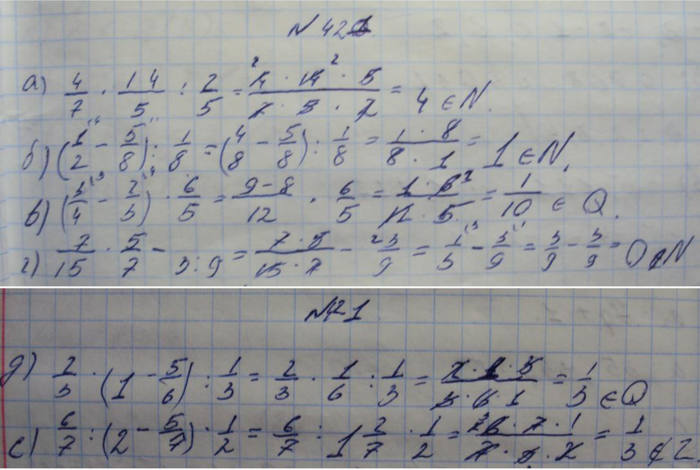 N 421
а) 4/7 · 14/5 : 2/5 = 4 · 14 · 5 / 7 · 5 · 2 = 4 ∈ N.
б) (1/2 - 5/8) : 1/8 = (4/8 - 5/8) : 1/8 = 1 · 8 / 8 · 1 = 1 ∈ N.
в) (3/4 - 2/3) · 6/5 = 9-8/12 · 6/5 = 1 · 6 / 12 · 5 = 1/10 ∈ Q.
г) 7/15 · 5/7 - 3:9 = 7 · 5 / 15 · 7 - 3/9 = 1/3 - 3/9 = 3/9 - 3/9 = 0 ∉ N
N421
д) 2/3 · (1 - 5/6) : 1/3 = 2/3 · 1/6 : 1/3 = 2 · 1 · 3 / 3 · 6 · 1 = 1/3 ∈ Q
е) 6/7 : (2 - 5/7) · 1/2 = 6/7 : 1 2/7 · 1/2 = 6 · 7 · 1 / 7 · 9 · 2 = 1/3 ∉ Z.